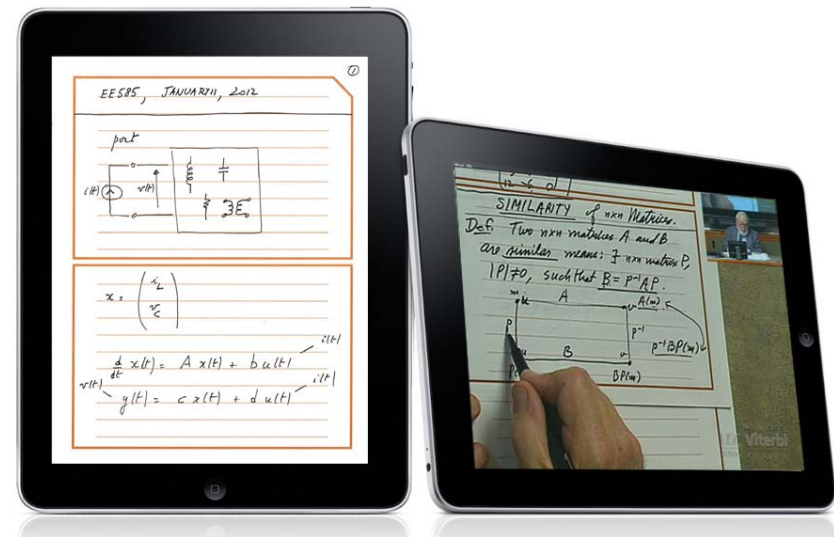 ①
EE585, JANUARY 11, 2012
port
i(t) v(t)
x = ( i_L
v_c )
d/dt x(t) = A x(t) + b u(t) i(t)
v(t) y(t) = c x(t) + d u(t) i(t)
12 -6 0
SIMILARITY of n×n Matrices.
Def: Two n×n matrices A and B
are similar means: ∃ n×n matrix P,
|P|≠0, such that B = P⁻¹AP.
m A A(m)
P P⁻¹ P⁻¹BP(m)
B
BP(m)
Viterbi